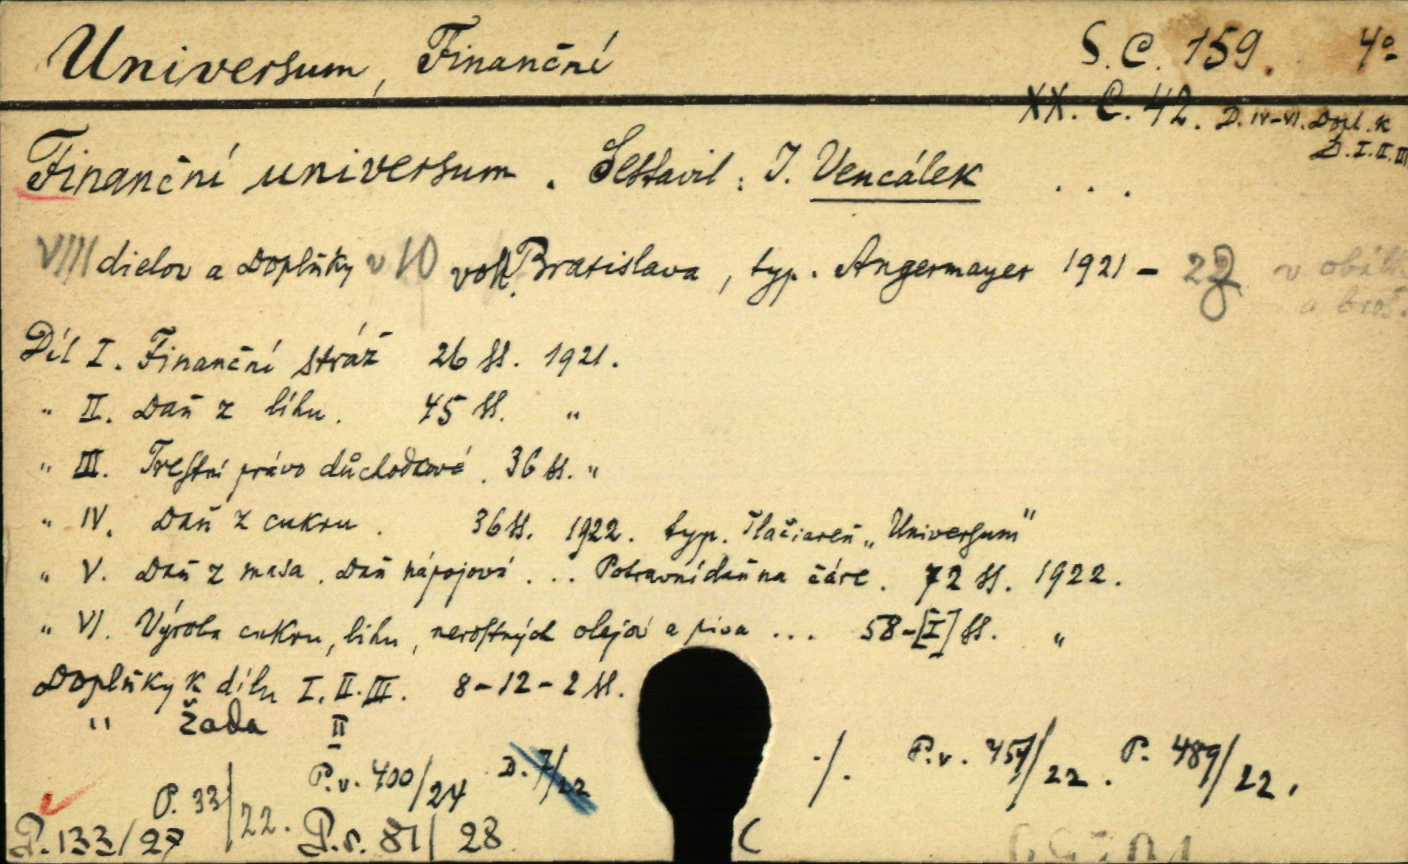 Universum, Finanční S. C. 159. 4º
XX. C. 42. D. IV-VI. Dopl. k
D. I. II. III
Finanční universum. Sestavil: J. Vencálek ...
VIII dielov a Doplňky v 10 vol. Bratislava, typ. Angermayer 1921 - 28 v obál.
a brož.
Díl I. Finanční stráž 26 ss. 1921.
" II. Daň z lihu. 45 ss. "
" III. Trestní právo důchodkové. 36 ss. "
" IV. Daň z cukru. 36 ss. 1922. typ. Tlačiareň „Universum"
" V. Daň z masa. Daň nápojová ... Potravní daň na čáre. 72 ss. 1922.
" VI. Výroba cukru, lihu, nerostných olejov a piva ... 58-[I] ss. "
Doplňky k dílu I. II. III. 8-12-2 ss.
" Žada II
P. 33/22. P.v. 400/24 D. 7/22 ./. P.v. 457/22. P. 489/22.
P. 133/27 P.s. 81/28 C